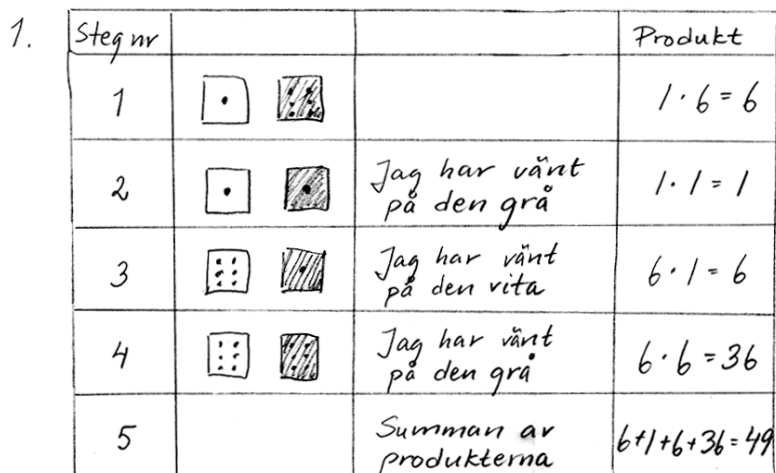 1.
Steg nr
Produkt
1
1 · 6 = 6
2
Jag har vänt
på den grå
1 · 1 = 1
3
Jag har vänt
på den vita
6 · 1 = 6
4
Jag har vänt
på den grå
6 · 6 = 36
5
Summan av
produkterna
6+1+6+36=49